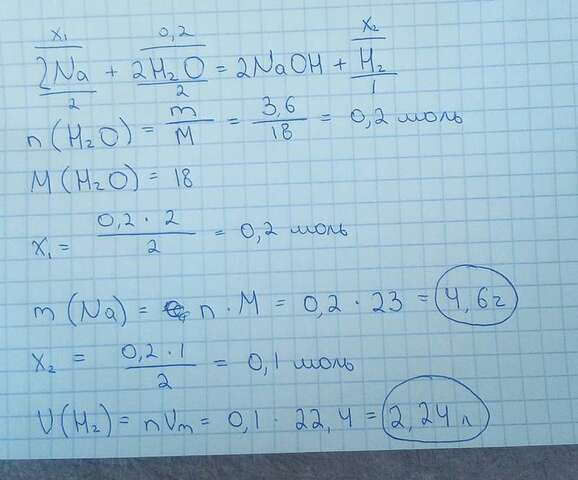 x₁ 0,2 x₂
2Na + 2H₂O = 2NaOH + H₂
2 2 1
n(H₂O) = m/M = 3,6/18 = 0,2 моль
M(H₂O) = 18
x₁ = 0,2 · 2/2 = 0,2 моль
m(Na) = n · M = 0,2 · 23 = 4,6г
x₂ = 0,2 · 1/2 = 0,1 моль
V(H₂) = nVm = 0,1 · 22,4 = 2,24 л